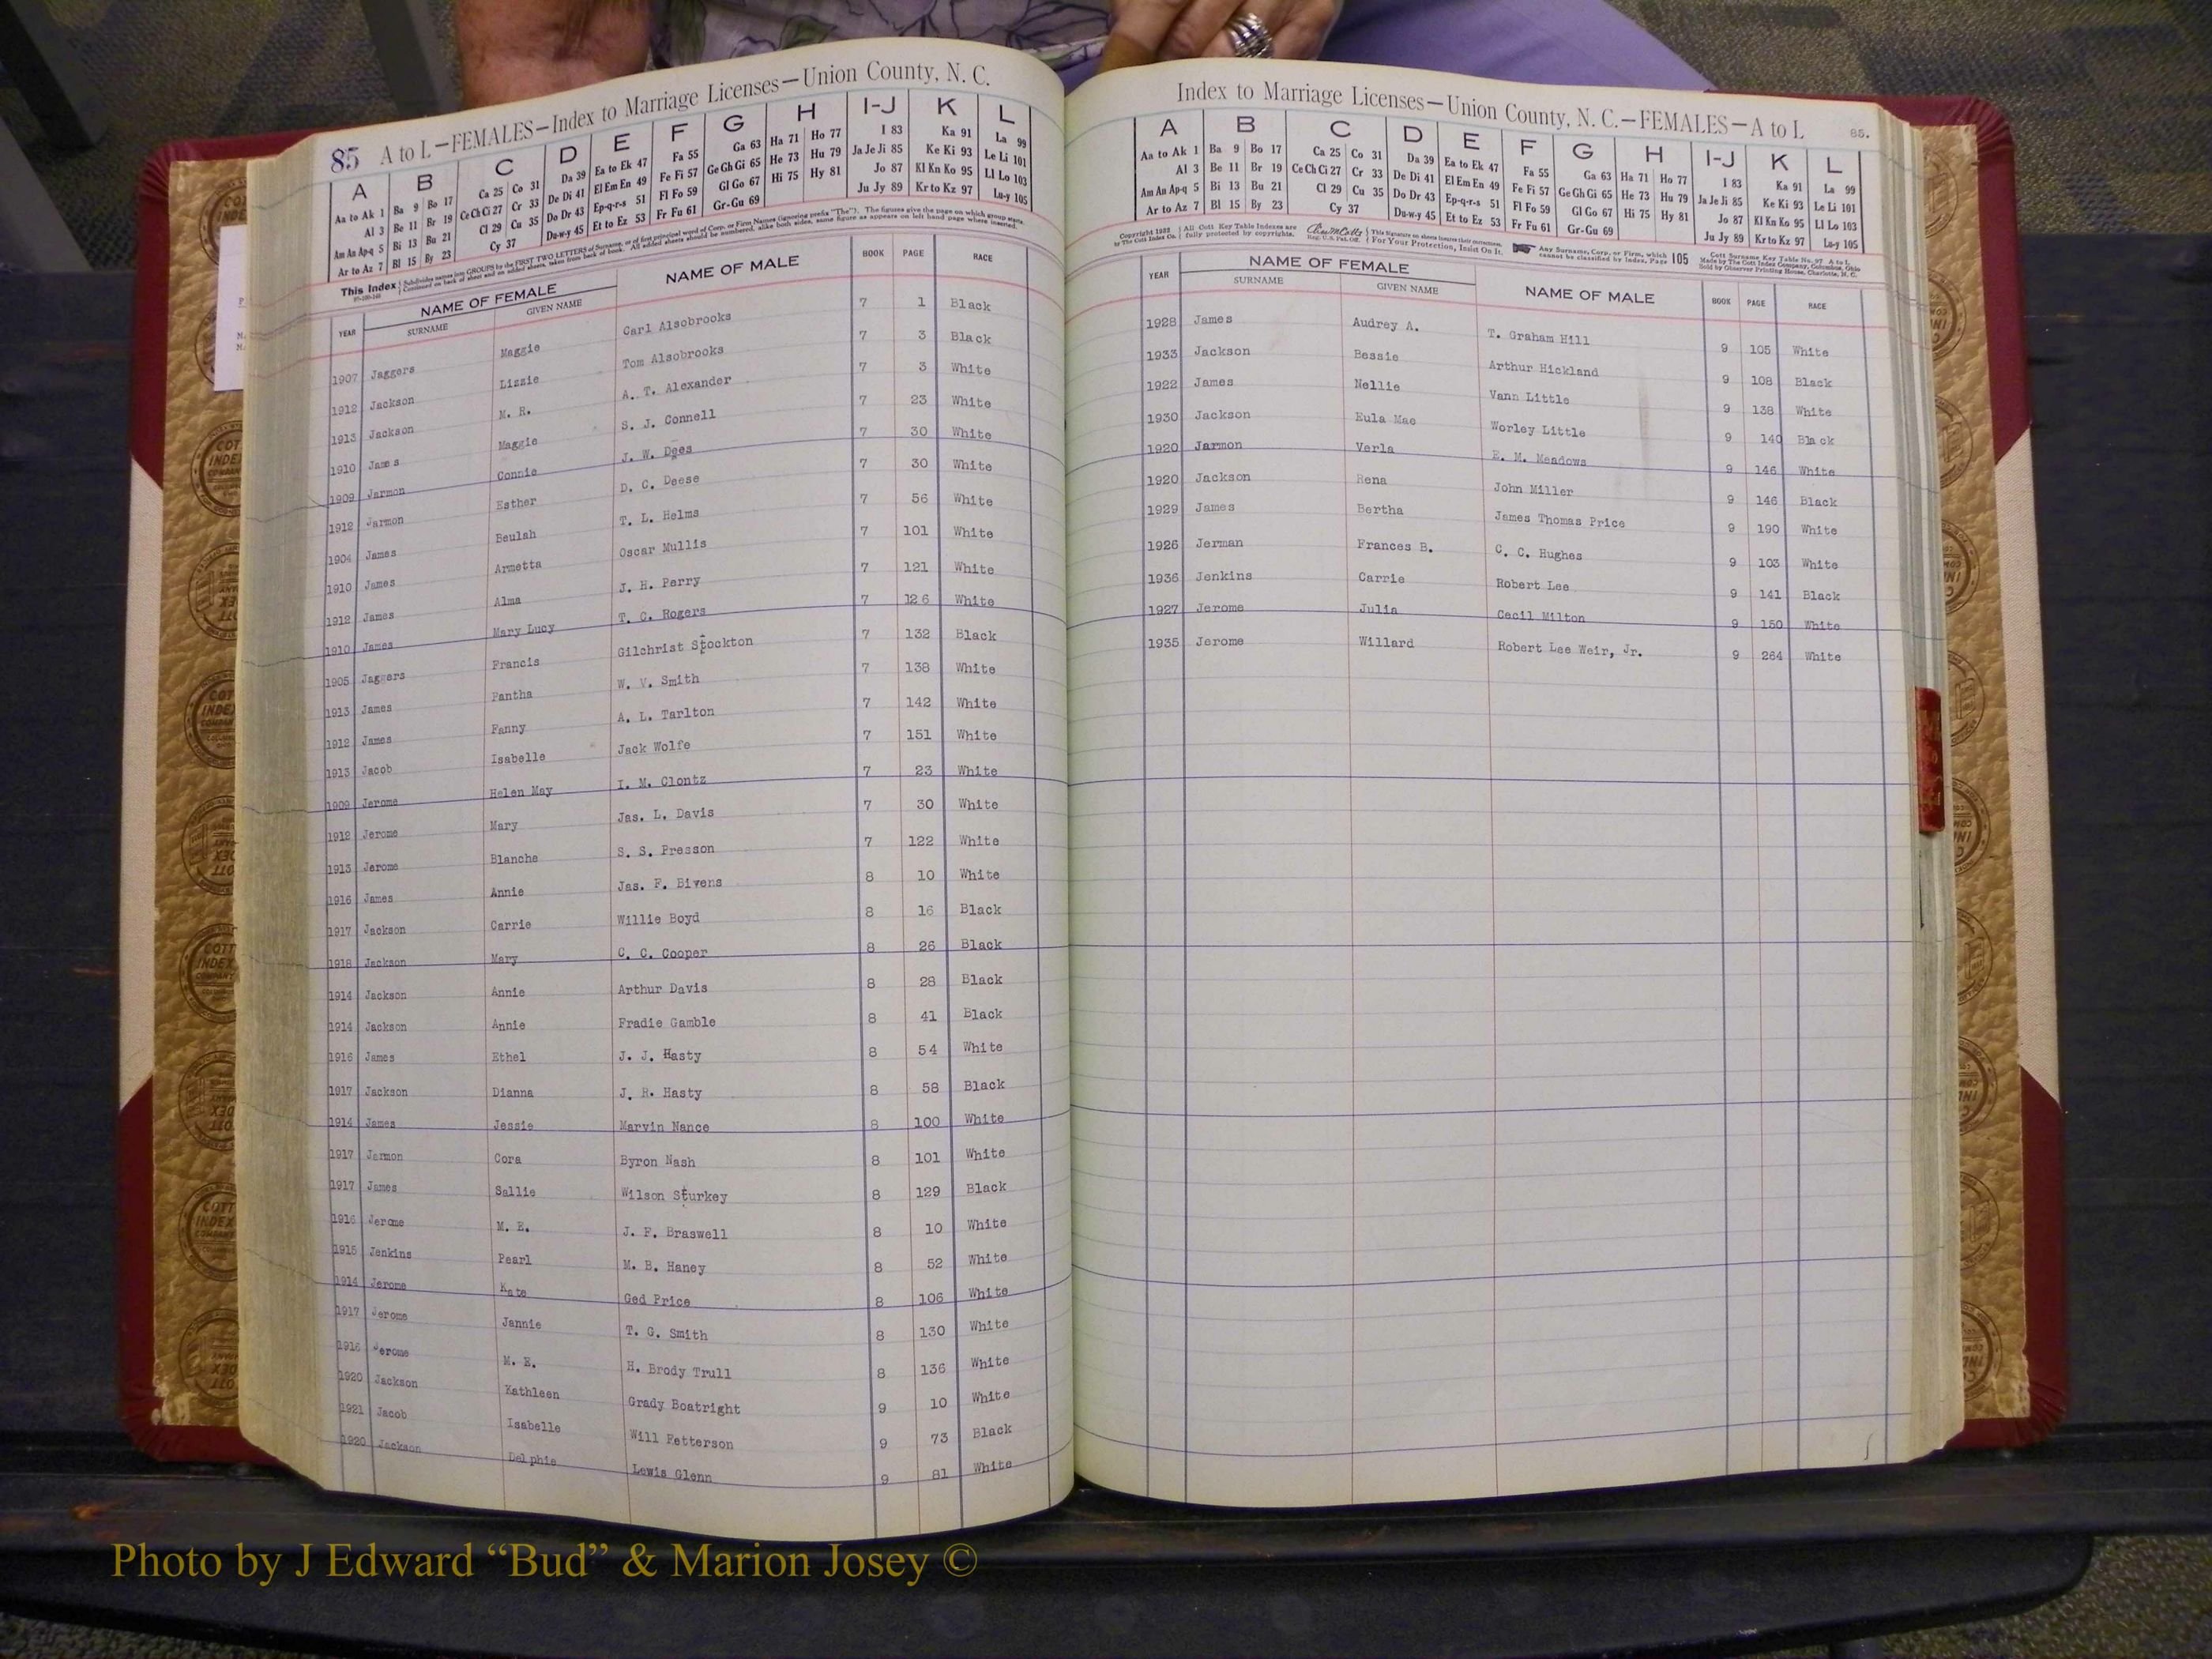 85 A to L—FEMALES—Index to Marriage Licenses—Union County, N. C.
A B C D E F G H I-J K L
Aa to Ak 1 Ba 9 Bo 17 Ca 25 Co 31 Da 39 Ea to Ek 47 Fa 55 Ga 63 Ha 71 Ho 77 I 83 Ka 91 La 99
Al 3 Be 11 Br 19 Ce Ch Ci 27 Cr 33 De Di 41 El Em En 49 Fe Fi 57 Ge Gh Gi 65 He 73 Hu 79 Ja Je Ji 85 Ke Ki 93 Le Li 101
Am An Ap-q 5 Bi 13 Bu 21 Cl 29 Cu 35 Do Dr 43 Ep-q-r-s 51 Fl Fo 59 Gl Go 67 Hi 75 Hy 81 Jo 87 Kl Kn Ko 95 Ll Lo 103
Ar to Az 7 Bl 15 By 23 Cy 37 Du-w-y 45 Et to Ez 53 Fr Fu 61 Gr-Gu 69 Ju Jy 89 Kr to Kz 97 Lu-y 105
This Index
YEAR NAME OF FEMALE SURNAME GIVEN NAME NAME OF MALE BOOK PAGE RACE
1907 Jaggers Maggie Carl Alsobrooks 7 1 Black
1912 Jackson Lizzie Tom Alsobrooks 7 3 Black
1913 Jackson M. R. A. T. Alexander 7 3 White
1910 James Maggie S. J. Connell 7 23 White
1909 Jarmon Connie J. W. Dees 7 30 White
1912 Jarmon Esther D. C. Deese 7 30 White
1904 James Beulah T. L. Helms 7 56 White
1910 James Armetta Oscar Mullis 7 101 White
1912 James Alma J. H. Perry 7 121 White
1910 James Mary Lucy T. C. Rogers 7 126 White
1905 Jaggers Francis Gilchrist Stockton 7 132 Black
1913 James Pantha W. V. Smith 7 138 White
1912 James Fanny A. L. Tarlton 7 142 White
1913 Jacob Isabelle Jack Wolfe 7 151 White
1909 Jerome Helen May I. M. Clontz 7 23 White
1912 Jerome Mary Jas. L. Davis 7 30 White
1913 Jerome Blanche S. S. Presson 7 122 White
1916 James Annie Jas. F. Bivens 8 10 White
1917 Jackson Carrie Willie Boyd 8 16 Black
1918 Jackson Mary C. C. Cooper 8 26 Black
1914 Jackson Annie Arthur Davis 8 28 Black
1914 Jackson Annie Fradie Gamble 8 41 Black
1916 James Ethel J. J. Hasty 8 54 White
1917 Jackson Dianna J. R. Hasty 8 58 Black
1914 James Jessie Marvin Nance 8 100 White
1917 Jarmon Cora Byron Nash 8 101 White
1917 James Sallie Wilson Sturkey 8 129 Black
1916 Jerome M. E. J. F. Braswell 8 10 White
1915 Jenkins Pearl M. B. Haney 8 52 White
1914 Jerome Kate Ged Price 8 106 White
1917 Jerome Jannie T. G. Smith 8 130 White
1916 Jerome M. E. H. Brody Trull 8 136 White
1920 Jackson Kathleen Grady Boatright 9 10 White
1921 Jacob Isabelle Will Fetterson 9 73 Black
1920 Jackson Delphie Lewis Glenn 9 81 White
Index to Marriage Licenses—Union County, N. C.—FEMALES—A to L 85.
A B C D E F G H I-J K L
Aa to Ak 1 Ba 9 Bo 17 Ca 25 Co 31 Da 39 Ea to Ek 47 Fa 55 Ga 63 Ha 71 Ho 77 I 83 Ka 91 La 99
Al 3 Be 11 Br 19 Ce Ch Ci 27 Cr 33 De Di 41 El Em En 49 Fe Fi 57 Ge Gh Gi 65 He 73 Hu 79 Ja Je Ji 85 Ke Ki 93 Le Li 101
Am An Ap-q 5 Bi 13 Bu 21 Cl 29 Cu 35 Do Dr 43 Ep-q-r-s 51 Fl Fo 59 Gl Go 67 Hi 75 Hy 81 Jo 87 Kl Kn Ko 95 Ll Lo 103
Ar to Az 7 Bl 15 By 23 Cy 37 Du-w-y 45 Et to Ez 53 Fr Fu 61 Gr-Gu 69 Ju Jy 89 Kr to Kz 97 Lu-y 105
YEAR NAME OF FEMALE SURNAME GIVEN NAME NAME OF MALE BOOK PAGE RACE
1928 James Audrey A. T. Graham Hill 9 105 White
1933 Jackson Bessie Arthur Hickland 9 108 Black
1922 James Nellie Vann Little 9 138 White
1930 Jackson Eula Mae Worley Little 9 140 Black
1920 Jarmon Verla E. M. Meadows 9 146 White
1920 Jackson Rena John Miller 9 146 Black
1929 James Bertha James Thomas Price 9 190 White
1926 Jerman Frances B. C. C. Hughes 9 103 White
1936 Jenkins Carrie Robert Lee 9 141 Black
1927 Jerome Julia Cecil Milton 9 150 White
1935 Jerome Willard Robert Lee Weir, Jr. 9 264 White
Photo by J Edward “Bud” & Marion Josey ©